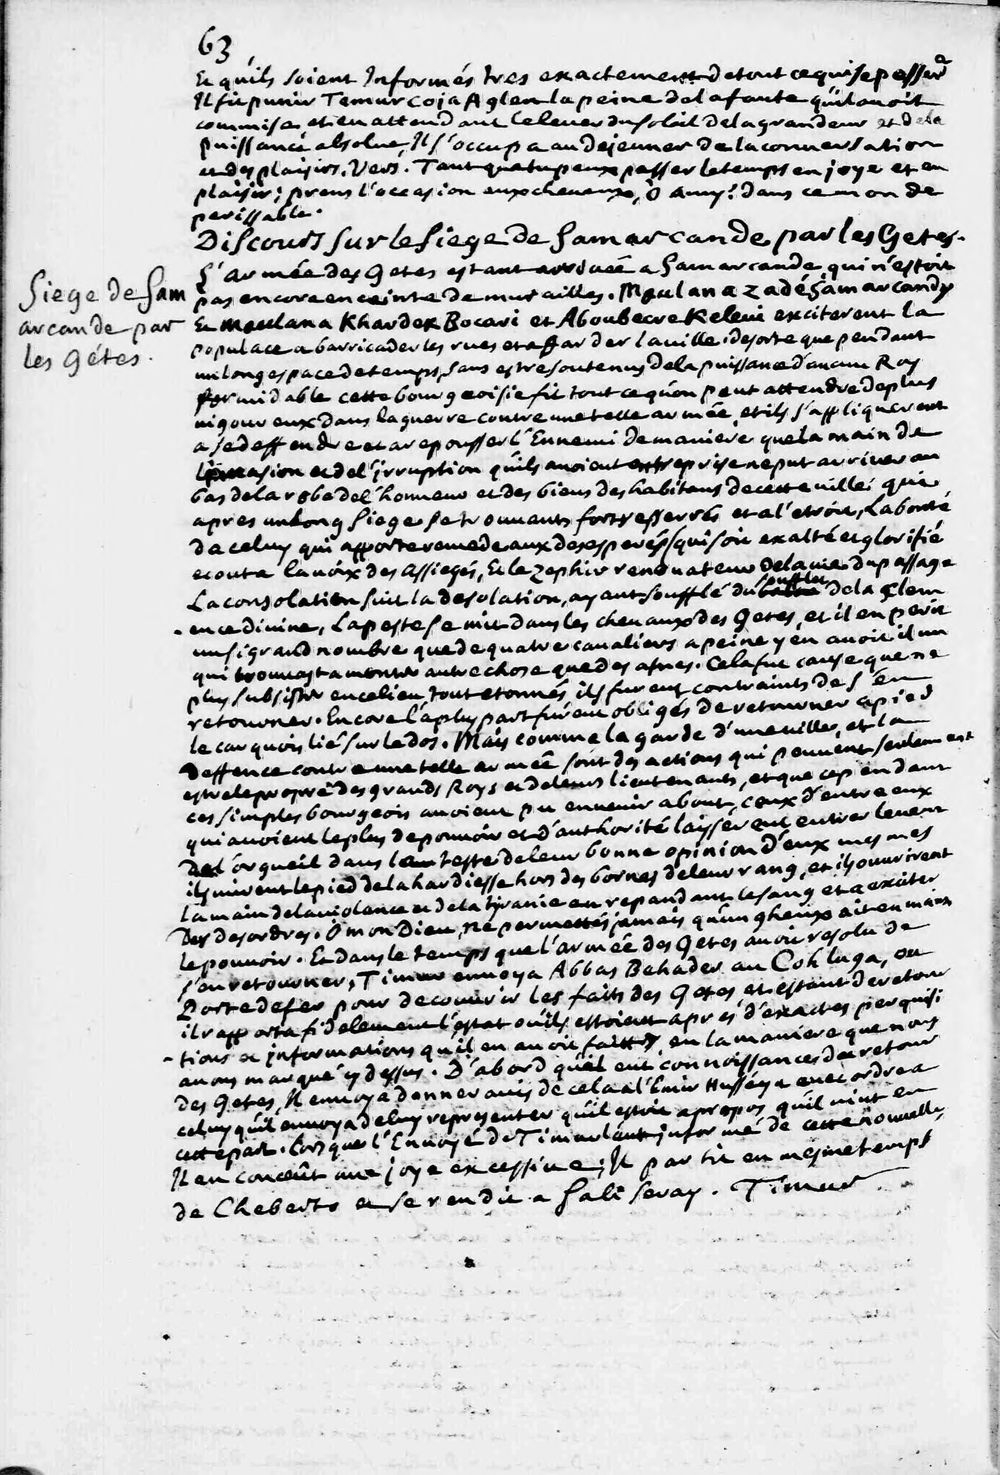 63
Et qu'ils soient Informés tres exactement de tout ce qui se passera
Il fit punir Temur Coja Aglen la peine de la faute qu'il avoit
commise, et en attendant le lever du soleil de la grandeur et de la
puissance absolue, Il s'occupa au dejeuner de la conversation
et des plaisirs. Vers. Tant que tu peux passer le temps en joye et en
plaisir; prens l'occasion aux cheveux, ô Amy! dans ce mon de
perissable.
Discours sur le siege de Samarcande par les Getes.
Siege de Sam
arcande par
les Gétes.
L'armée des Getes estant arrivée a Samarcande, qui n'estoit
pas encore enceinte de murailles. Moulana Zadé Samarcandy
Et Moulana Khardek Bocari et Aboubecre Kelevi exciterent la
populace a barricader les rues et a garder la ville, de sorte que pendant
un long espace de temps, sans estre soutenus de la puissance d'aucun Roy
formidable cette bourgeoisie fit tout ce qu'on peut attendre de plus
vigoureux dans la guerre contre une telle armée, et ils s'appliquerent
a se deffendre et a repousser l'Ennemi de maniere que la main de
l'invasion et de l'irruption qu'ils avoient entreprise ne put arriver au
bas de la robe de l'honneur et des biens des habitans de cette ville, qui
apres un long siege se trouvants fort resserrés et a l'etroit, La bonté
de celuy qui apporte remede aux desesperés (qui soit exalté et glorifié
ecouta la voix des Assiegés, Et le Zephir renovateur de la vie du passage
La consolation suit la desolation, ayant soufflé du souffle de la Clem
-ence divine, La peste se mit dans les chevaux des Getes, et il en périt
un si grand nombre que de quatre cavaliers a peine y en avoit il un
qui trouvast a monter autre chose que des asnes. Cela fut cause que ne
plus subsister en ce lieu, tout etonnés ils furent contraints de s'en
retourner. Encore la plus part furent obligés de retourner a pied
le carquois lié sur le dos. Mais comme la garde d'une ville, et la
deffence contre une telle armée sont des actions qui peuvent seulement
estre le propre des grands Roys et de leurs lieutenants, et que cependant
ces simples bourgeois avoient pu en venir a bout, ceux d'entre eux
qui avoient le plus de pouvoir et d'authorité laisserent entrer le vent
de l'orgueil dans la teste de leur bonne opinion d'eux mesmes
ils mirent le pied de la hardiesse hors des bornes de leur rang, et ils ouvrirent
la main de la violence et de la tyranie en repandant le sang et a exciter
des desordres. O mon Dieu, ne permettés jamais qu'un gheux ait en main
le pouvoir. Et dans le temps que l'armée des Getes avoit resolu de
s'en retourner, Timur envoya Abbas Behader au Cohluga, ou
Porte de fer pour decouvrir les faits des Getes et estant de retour
il rapporta fidelement l'estat où ils estoient apres d'exactes perquisi
-tions et informations qu'il en avoit faittes en la maniere que nous
avons marqué cy dessus. D'abord qu'il eut connoissance du retour
des Getes, Il envoya donner avis de cela a l'Emir Husséyn avec ordre a
celuy qu'il envoya de luy representer qu'il estoit a propos qu'il vint en
cette part. Lors que l'Envoyé de Timur l'eut informé de cette nouvelle,
Il en conceût une joye excessive; Il partit en mesme temps
de Cheberto et se rendit a Sali Seray. Timur